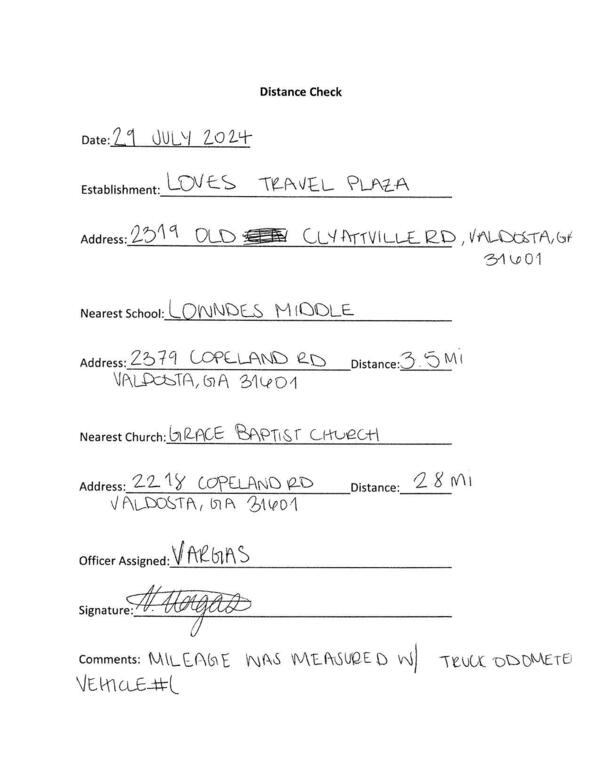 Distance Check
Date: 29 JULY 2024
Establishment: LOVES TRAVEL PLAZA
Address: 2319 OLD CLYATTVILLE RD, VALDOSTA, GA
31601
Nearest School: LOWNDES MIDDLE
Address: 2379 COPELAND RD Distance: 3.5 Mi
VALDOSTA, GA 31601
Nearest Church: GRACE BAPTIST CHURCH
Address: 2218 COPELAND RD Distance: 2.8 Mi
VALDOSTA, GA 31601
Officer Assigned: VARGAS
Signature: N. Vargas
Comments: MILEAGE WAS MEASURED W/ TRUCK ODOMETE
VEHICLE #(